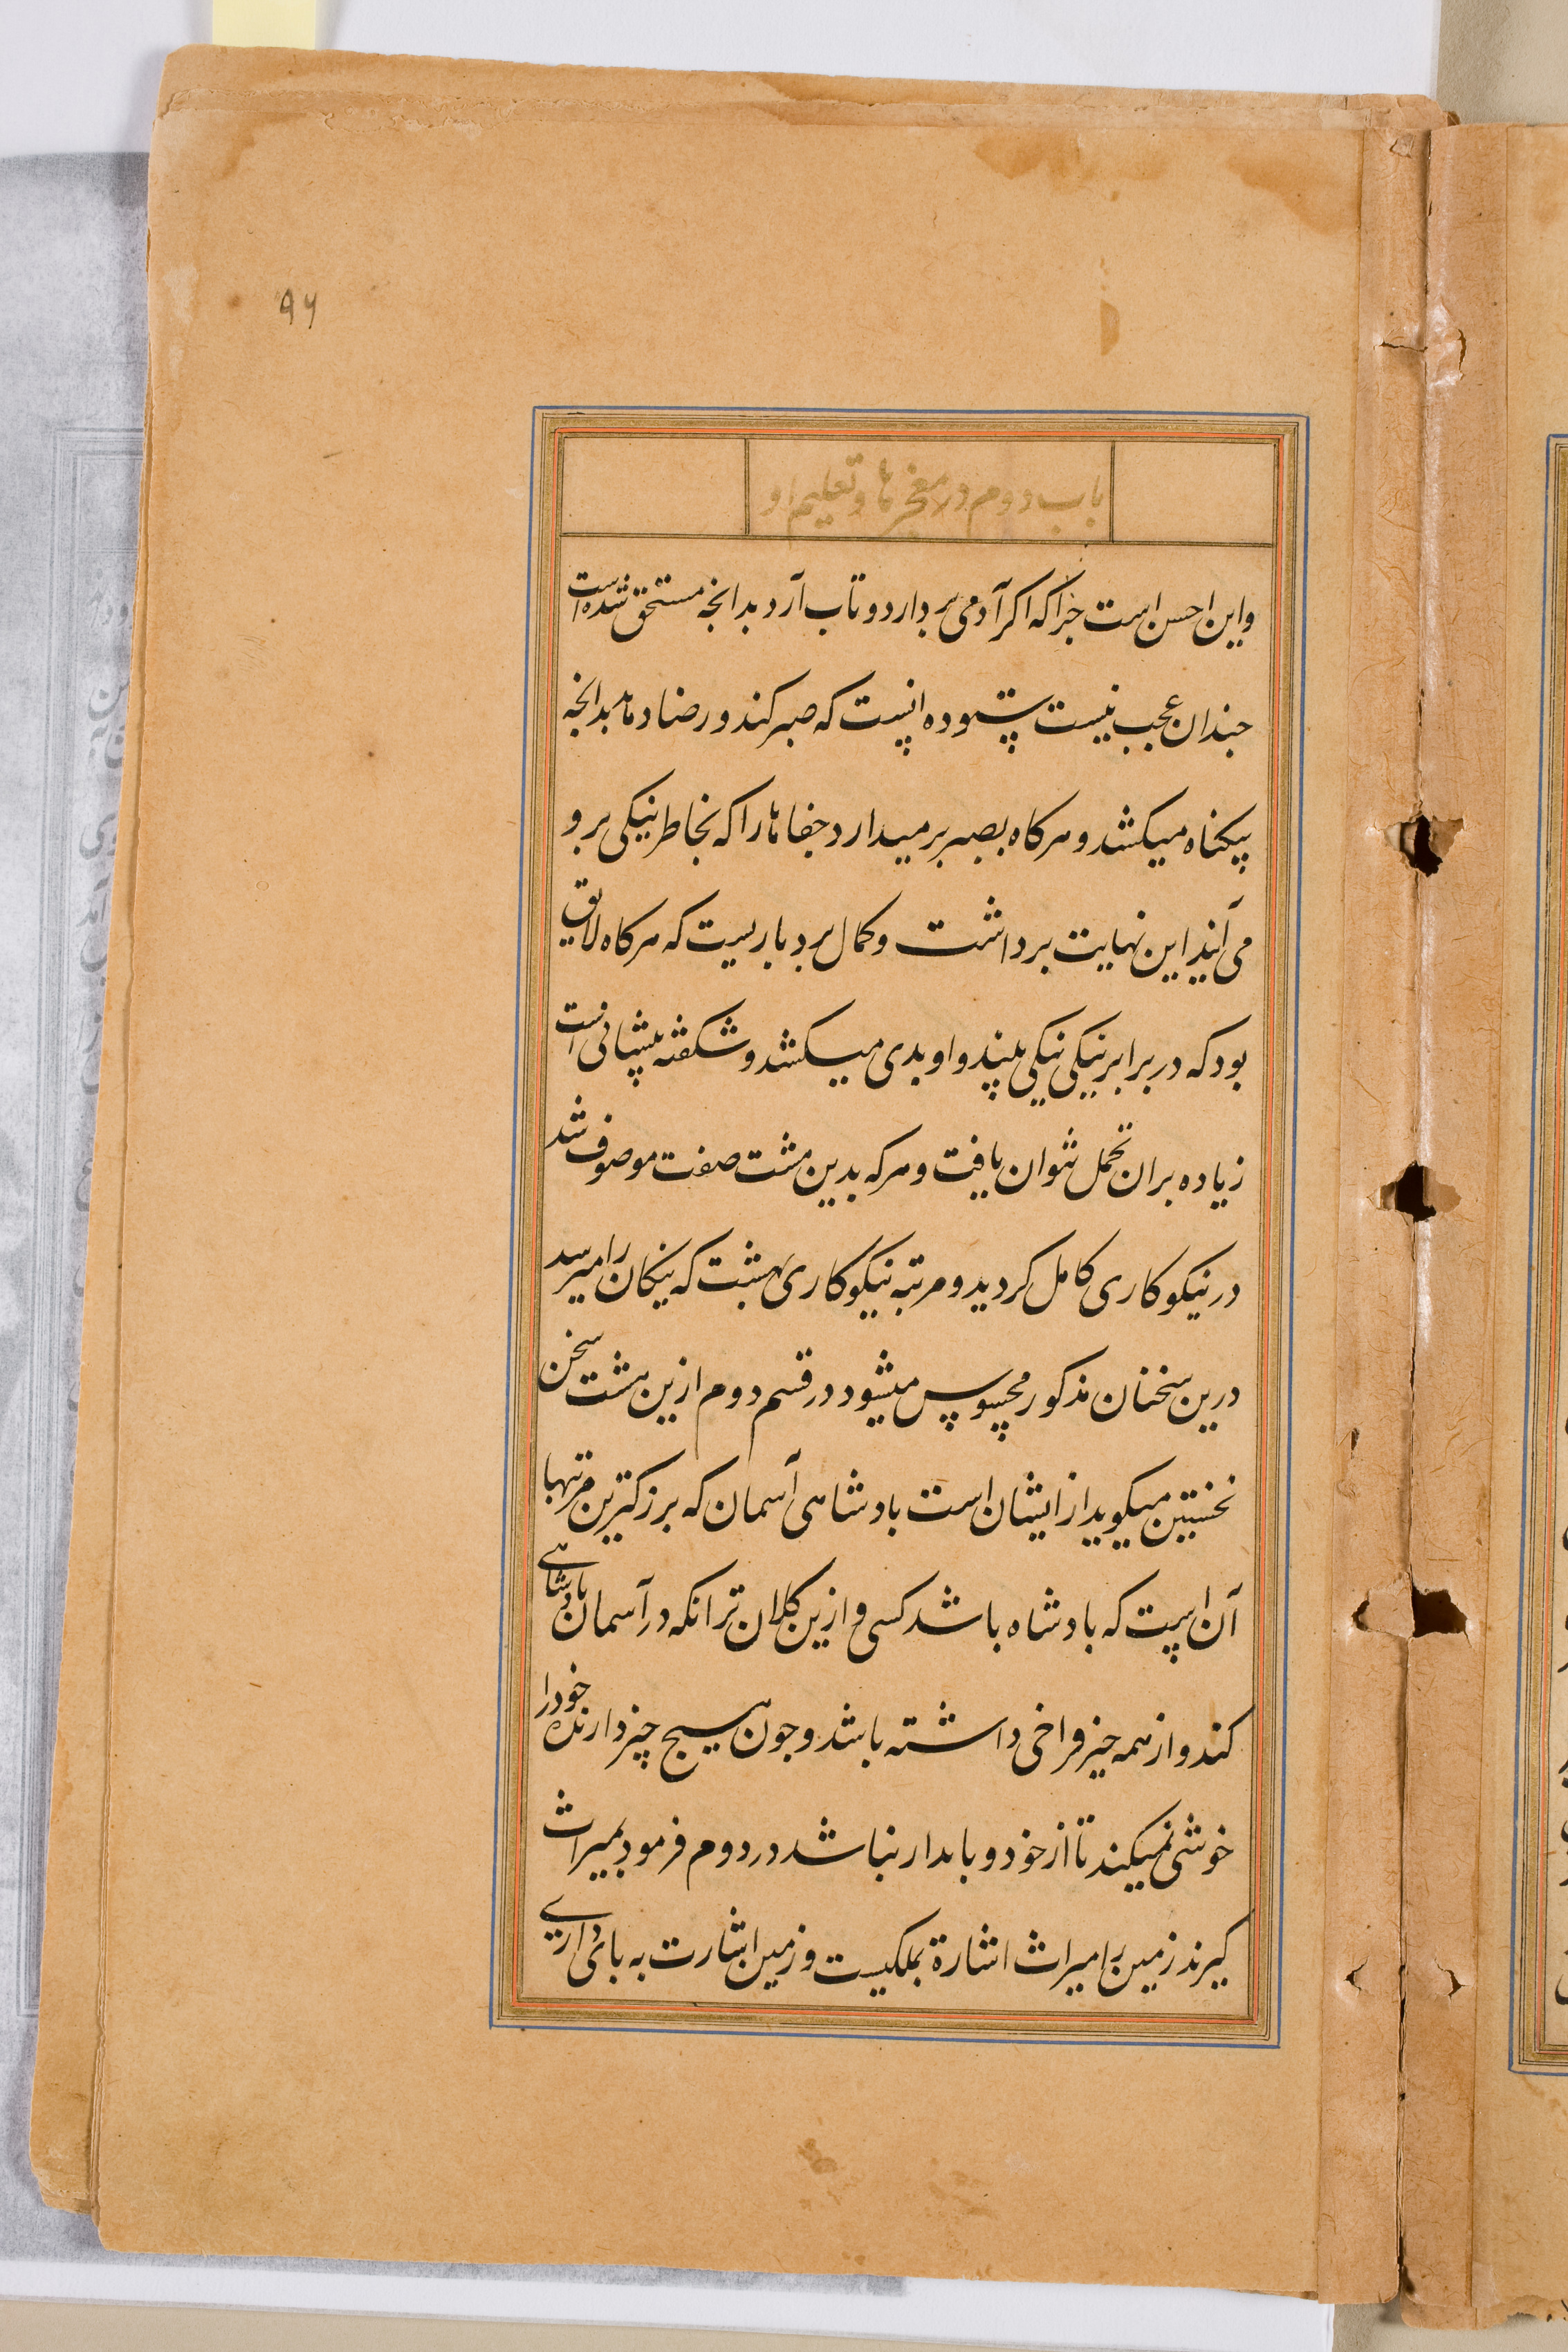 ۹۶
باب دوم در معجزها و تعلیم او
و این احسن است جراکه اکر آدمی بردارد و تاب آرد بدانجه مستحق شده است
جندان عجب نیست ستوده اینست که صبر کند و رضا دهد بدانجه
بیکناه میکشد و هرکاه بصبر برمیدارد جفاها را که بخاطر نیکی برو
می آید این نهایت برداشت و کمال بردباریست که هرکاه لایق
بود که در برابر نیکی نیکی بیند و او بدی میکشد و شکفته پیشانی است
زیاده بران تحمل نتوان یافت و هرکه بدین هشت صفت موصوف شد
در نیکوکاری کامل کردید و مرتبه نیکوکاری بهشت که نیکان را میرسد
درین سخنان مذکور محسوس میشود در قسم دوم ازین هشت سخن
نخستین میکوید از ایشان است بادشاهی آسمان که بزرکترین مرتبها
آن است که بادشاه باشد کسی و ازین کلان تر انکه در آسمان بادشاهی
کند و از همه چیز فراخی داشته باشد و جون هیسج چیز دارنده خود را
خوشی نمیکند تا از خود و بابدار نباشد در دوم فرمود بمیراث
کیرند زمین را میراث اشارة بملکیست و زمین اشارت به بای داری